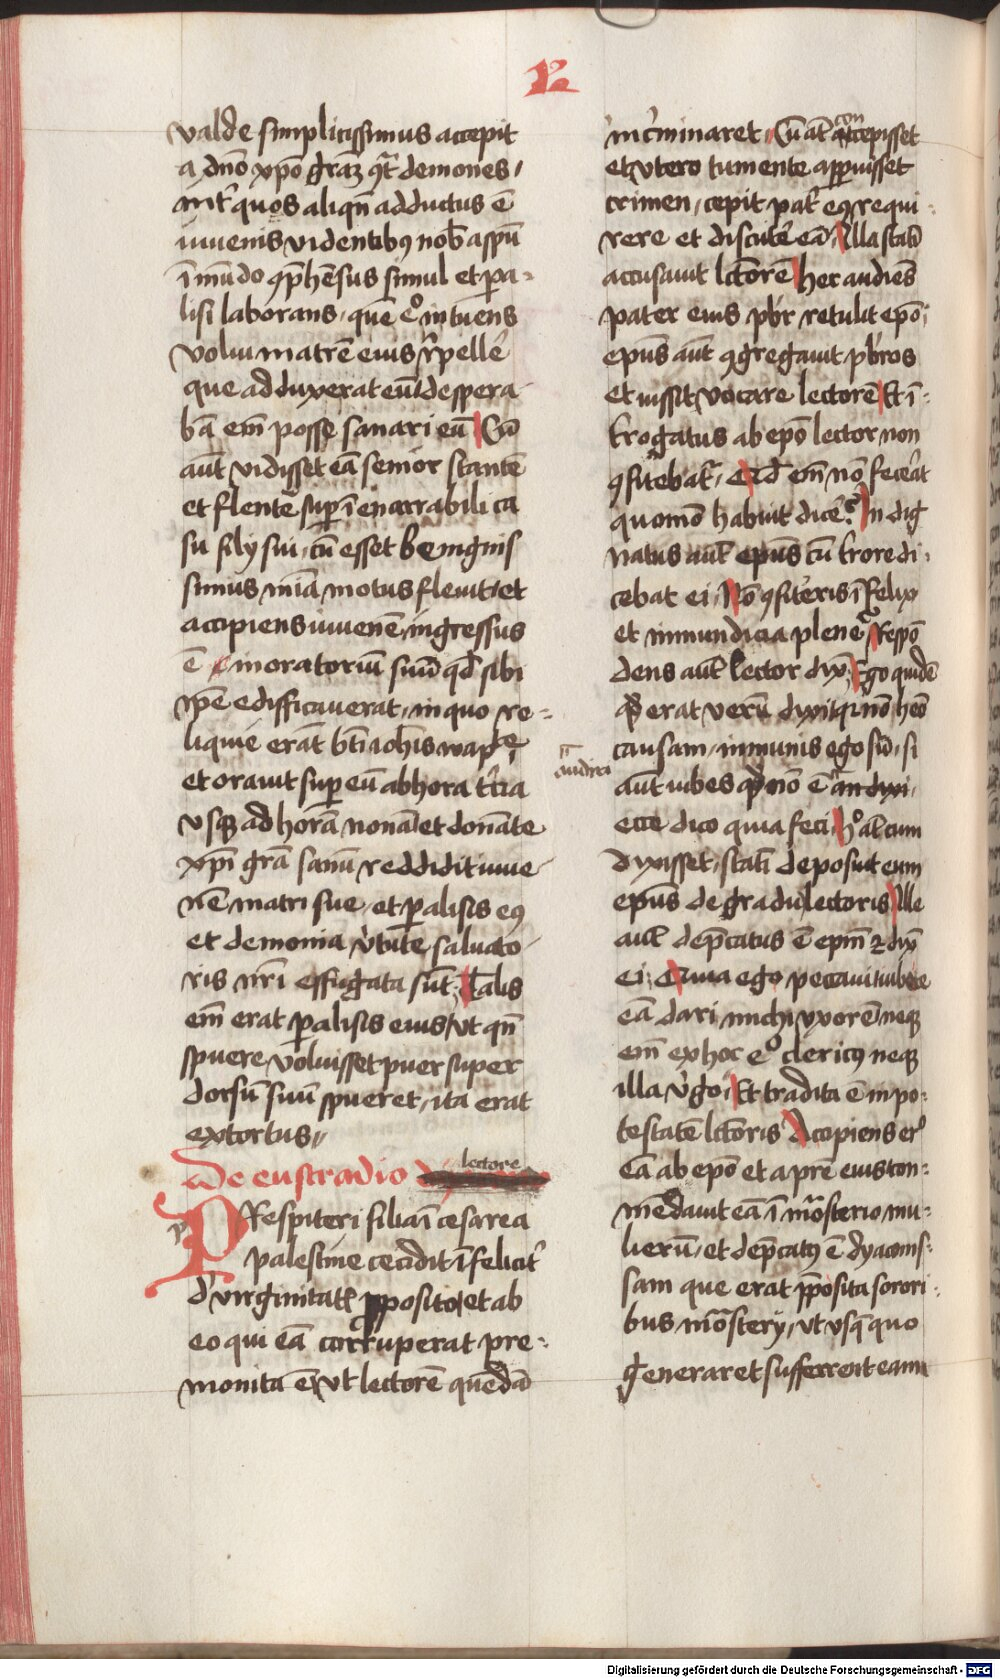 valde simplicissimus accepit
a dno xpo graz qtra demones
int quos aliqn adductus ē
iuuenis videntibꝫ nob aspm
īmundo ꝯphensus simul et pa-
lisi laborans quē ego intuens
volui matrē eius repellere
que adduxerat eū despera-
bā em posse sanari eū Cū
aut vidisset eā senior stantē
et flentē super īenarrabili ca
su filij sui cū esset benignis
simus mīa motus fleuit et
accipiens iuuenē ingressus
ē in oratoriū suū qd sibi
ipse edifficauerat in quo re-
liquie erāt bti iohis bapte
et orauit super eū ab hora tcia
vsqꝫ ad horā nonā et donāte
xpi grā sanū reddidit iuue
nē matri sue et palisis eꝰ
et demonia vtute saluato
ris nri effugata sūt Talis
em erat palisis eius vt qn
spuere voluisset puer super
dorsū suū spueret ita erat
extortus
De eustradio lectore
PRespiteri filia ī cesarea
palestine cecidit īfelicit
d virginitat proposito et ab
eo qui eā corruperat pre-
monita ē vt lectorē quēdā
incminaret Cū at concepisset
et vtero tumente apparuisset
crimen cepit pater eꝰ requi
rere et discutere eā Illa stati
accusauit lctorē hec audies
pater eius pbr retulit epo
epus aut ꝯgregauit pbros
et iussit vocare lectorē Et ī-
trogatus ab epo lector non
ꝯfitebatr Qd em nō fecerat
quomo habuit dice In dig
natus aut epus cū trore di-
cebat ei Nō ꝯfiteris īfelix
et inmundicia plene Respō
dens aut lector dix Ego quidē
qd erat verū dixi quia nō heo
causam inmunis ego sū si
aut iubes qd nō ē audiri
audire
ecce dico quia feci Hoc at cum
dixisset stati deposuit eum
epus de gradu lectoris Ille
aut depcatus ē epm et dix
ei Quia ego peccaui iubete
eā dari michi vxorē neqꝫ
em ex hoc ego clericꝰ neqꝫ
illa vgo Et tradita ē in po-
testatē lctoris Accipiens ergo
eā ab epo et a pre eius con-
mēdauit eā ī mrasterio mu-
lierū et depcatꝰ ē dyaconis-
sam que erat pposita sorori-
bus mrastery vt vsqꝫ quo
generaret sufferrent eam
Digitalisierung gefördert durch die Deutsche Forschungsgemeinschaft - DFG